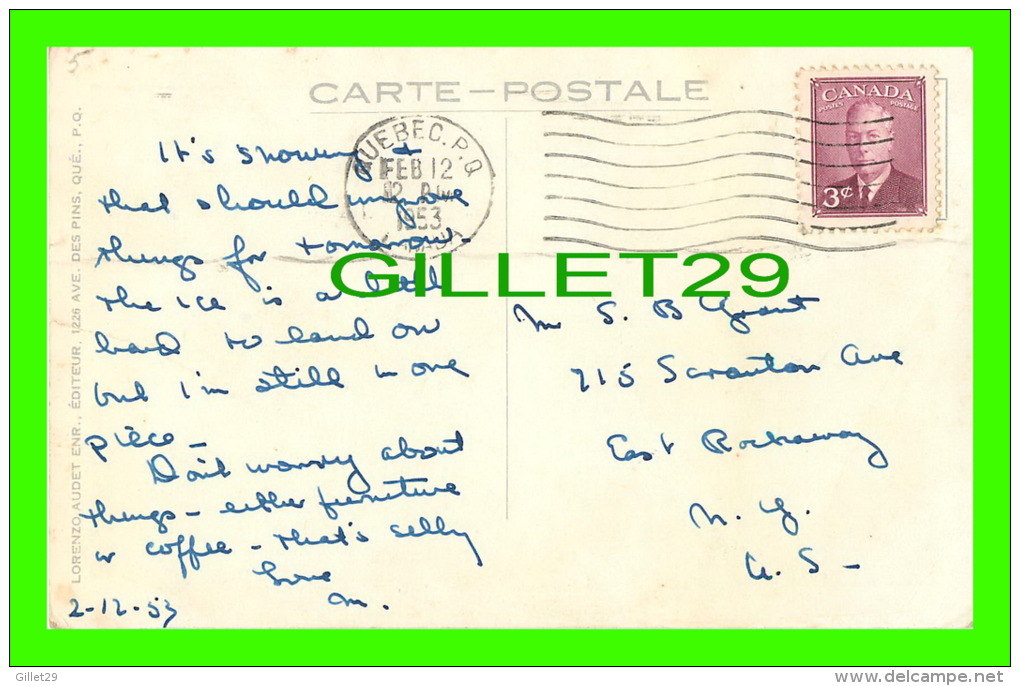 5
CARTE-POSTALE
CANADA
POSTES POSTAGE
3¢
QUEBEC. P.Q
FEB 12
1953
CANADA
It's snowing +
that should improve
things for tomorrow -
the ice is a little
hard to land on
but I'm still in one
piece -
Don't worry about
things - either furniture
or coffee - that's silly
Love
M.
2-12-53
GILLET29
Mr S. B Grant
715 Scranton Ave
East Rockaway
N. Y.
U. S -
LORENZO AUDET ENR., ÉDITEUR, 1226 AVE. DES PINS, QUÉ., P.Q.
Gillet29
delcampe.net